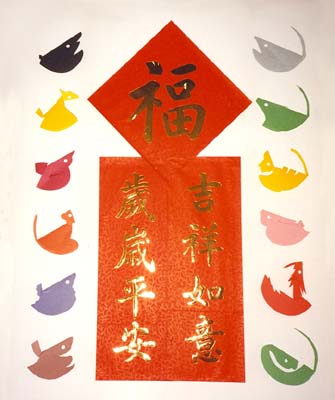 福
吉祥如意
歲歲平安